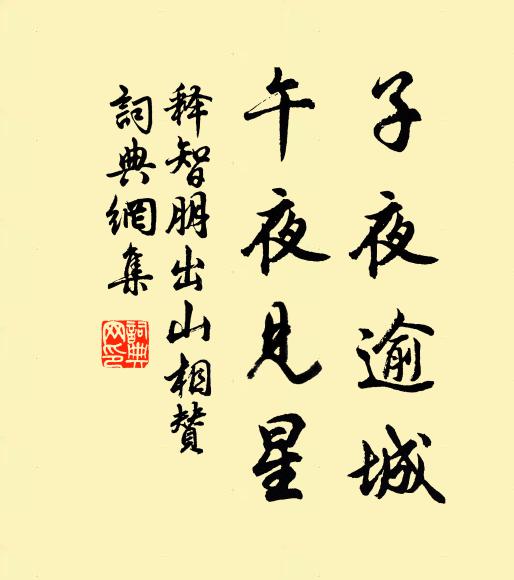 子夜逾城
午夜見星
释智朋出山相赞
詞典網集
詞典网印